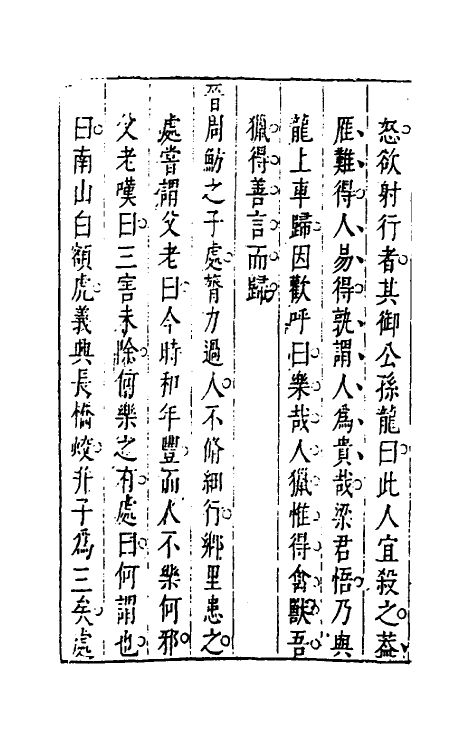 怒欲射行者其御公孫龍曰此人宜殺之蓋
雁難得人易得孰謂人為貴哉梁君悟乃與
龍上車歸因歡呼曰樂哉人獵惟得禽獸吾
獵得善言而歸
晉周魴之子處膂力過人不脩細行鄉里患之
處嘗謂父老曰今時和年豐而人不樂何邪
父老嘆曰三害未除何樂之有處曰何謂也
曰南山白額虎義興長橋蛟并子為三矣處